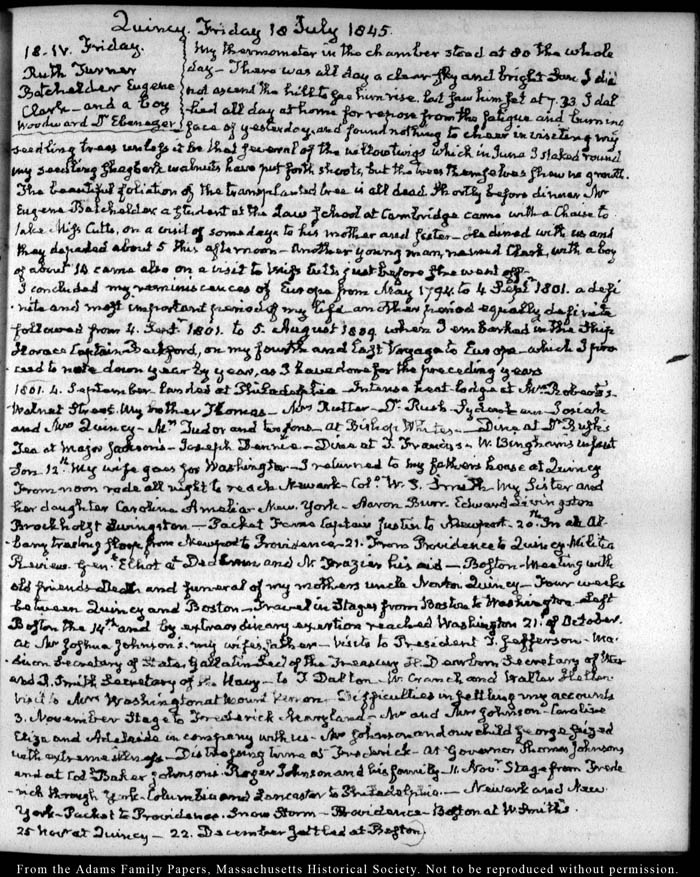 Quincy. Friday 18 July 1845.
18. IV. Friday.
Ruth Turner
Batchelder Eugene
Clark — and a boy
Woodward Dr Ebenezer
My thermometer in the chamber stood at 80 the whole
day — There was all day a clear sky and bright Sun. I did
not ascend the hill to see him rise. but saw him set at 7.33 I dal
lied all day at home for repose from the fatigue and burning
face of yesterday, and found nothing to cheer in visiting my
seedling trees unless it be that several of the willow twigs which in June I staked round
my seedling shagbark walnuts have put forth shoots, but the trees themselves show no growth.
The beautiful foliation of the transplanted tree is all dead. Shortly before dinner Mr
Eugene Batchelder a student at the Law School at Cambridge came with a Chaise to
take Miss Cutts, on a visit of some days to his mother and sister — He dined with us and
they departed about 5 this afternoon — Another young man, named Clark, with a boy
of about 12 came also on a visit to Miss Cutts just before she went off —
I concluded my reminiscences of Europe from May 1794 to 4 Septr 1801. a defi
nite and most important period of my life another period equally definite
followed from 4. Septr 1801. to 5. August 1809 when I embarked in the Ship
Horace Captain Beckford, on my fourth and last Voyage to Europe — which I pro
ceed to note down year by year, as I have done for the preceding years
1801. 4. September landed at Philadelphia — Intense heat — lodge at Mrs Roberts's
Walnut Street. My brother Thomas — Mrs Rutter — Dr Rush — Josiah
and Mrs Quincy — Mrs Tudor and two sons — at Bishop White's — Dine at Dr Rush's
Tea at Major Jackson's — Joseph Dennie — Dine at T. Francis's — W. Bingham's infant
Son 12th. My wife goes for Washington — I returned to my father's house at Quincy
From noon rode all night to reach Newark — Colo. W. S. Smith — My Sister and
her daughter Caroline Amelia — New York — Aaron Burr. Edward Livingston
Brockholst Livingston — Packet Fame Captain Justin to Newport. 20th In an Al
bany trading sloop, from Newport to Providence — 21. From Providence to Quincy. Militia
Review. Genl Elliot at Dedham and Mr Frazier his aid — Boston — Meeting with
old friends — Death and funeral of my mother's uncle Norton Quincy — Four weeks
between Quincy and Boston — Travel in Stages from Boston to Washington — Left
Boston the 14th and by extraordinary exertion reached Washington 21. of October.
at Mr Joshua Johnson's. my wife's father — visits to President T. Jefferson — Ma
dison Secretary of State, Gallatin Secy of the Treasury H. Dearborn Secretary of War
and R. Smith Secretary of the Navy — to T. Dalton — W. Cranch and Walter
Visit to Mrs Washington at Mount Vernon — Difficulties in settling my accounts
3. November Stage to Frederick Maryland — Mr and Mrs Johnson — Caroline
Eliza and Adelaide in company with us — Mr Johnson and our child George seized
with extreme illness — Distressing time at Frederick — at Governor Thomas Johnsons
and at Colo. Baker Johnsons — Roger Johnson and his family — 11. Novr Stage from Frede
rick through York — Columbia and Lancaster to Philadelphia. — Newark and New
York — Packet to Providence. Snow Storm — Providence — Boston at W Smith's
25 Novr at Quincy — 22. December settled at Boston
From the Adams Family Papers, Massachusetts Historical Society. Not to be reproduced without permission.